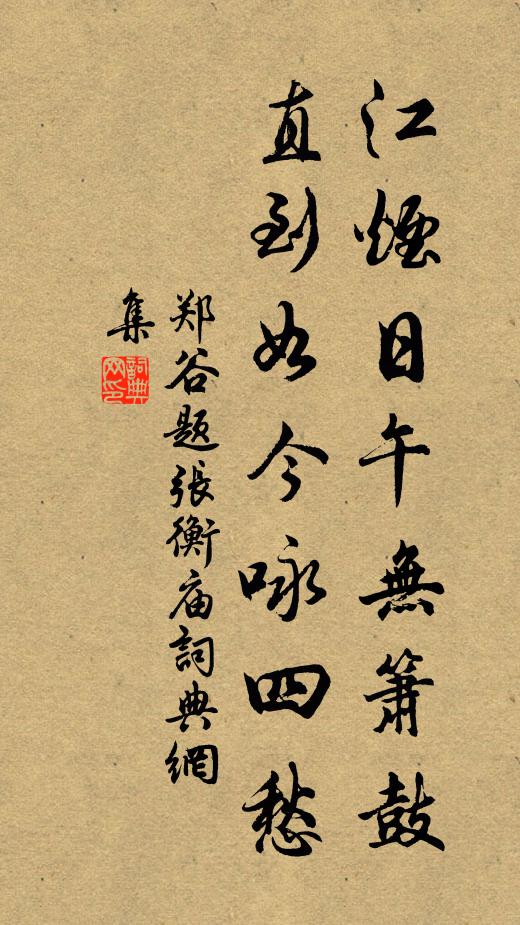 江煙日午無簫鼓
直到如今咏四愁
郑谷题張衡庙詞典網
集
詞典网印